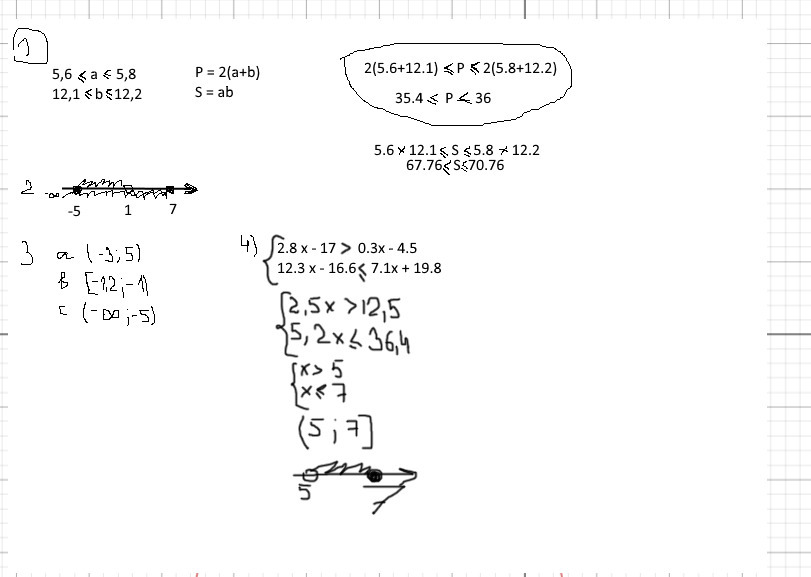 1
5,6 ⩽ a ⩽ 5,8
12,1 ⩽ b ⩽ 12,2
P = 2(a+b)
S = ab
2(5.6+12.1) ⩽ P ⩽ 2(5.8+12.2)
35.4 ⩽ P ⩽ 36
5.6 × 12.1 ⩽ S ⩽ 5.8 × 12.2
67.76 ⩽ S ⩽ 70.76
2 -∞
-5 1 7
3 a (-3;5)
b [-12;-1)
c (-∞;-5)
4)
2.8 x - 17 > 0.3x - 4.5
12.3 x - 16.6 ⩽ 7.1x + 19.8
2,5x > 12,5
5,2x ⩽ 36,4
x > 5
x ⩽ 7
(5;7]
5 7